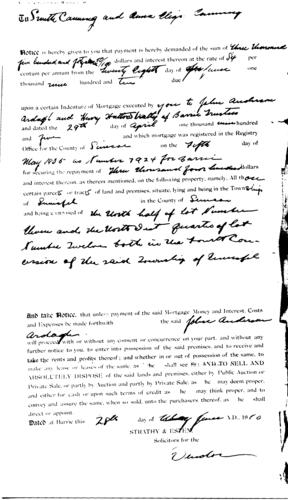 To Smith Canning and Anna Eliza Canning
Notice is hereby given to you that payment is hereby demanded of the sum of three thousand
five hundred and dollars and interest thereon at the rate of 5½ per
centum per annum from the Twenty Eighth day of June one
thousand nine hundred and ten due
upon a certain Indenture of Mortgage executed by you to John Anderson
Ardagh and Henry Hatton Strathy of Barrie Trustees
and dated the 29th day of April one thousand nine hundred
and five and which mortgage was registered in the Registry
Office for the County of Simcoe on the Fifth day of
May 1905 as Number 7924 for Barrie
for securing the repayment of Three thousand four hundred dollars
and interest thereon, as therein mentioned, on the following property, namely: All those
certain parcels or tracts of land and premises, situate, lying and being in the Township
of Innisfil in the County of Simcoe
and being composed of the North half of lot Number
three and the North West quarter of lot
Number Twelve both in the Fourth Con
cession of the said Township of Innisfil
And take Notice, that unless payment of the said Mortgage Money and Interest, Costs
and Expenses be made forthwith the said John Anderson
Ardagh
will proceed with or without any consent or concurrence on your part, and without any
further notice to you, to enter into possession of the said premises and to receive and
take the rents and profits thereof; and whether in or out of possession of the same, to
make any lease or leases of the same as he shall see fit: AND TO SELL AND
ABSOLUTELY DISPOSE of the said lands and premises, either by Public Auction or
Private Sale, or partly by Auction and partly by Private Sale, as he may deem proper,
and either for cash or upon such terms of credit as he may think proper, and to
convey and assure the same, when so sold, unto the purchasers thereof, as he shall
direct or appoint.
Dated at Barrie this 28th day of June A.D., 1910
STRATHY & ESTEN
Solicitors for the
Vendor